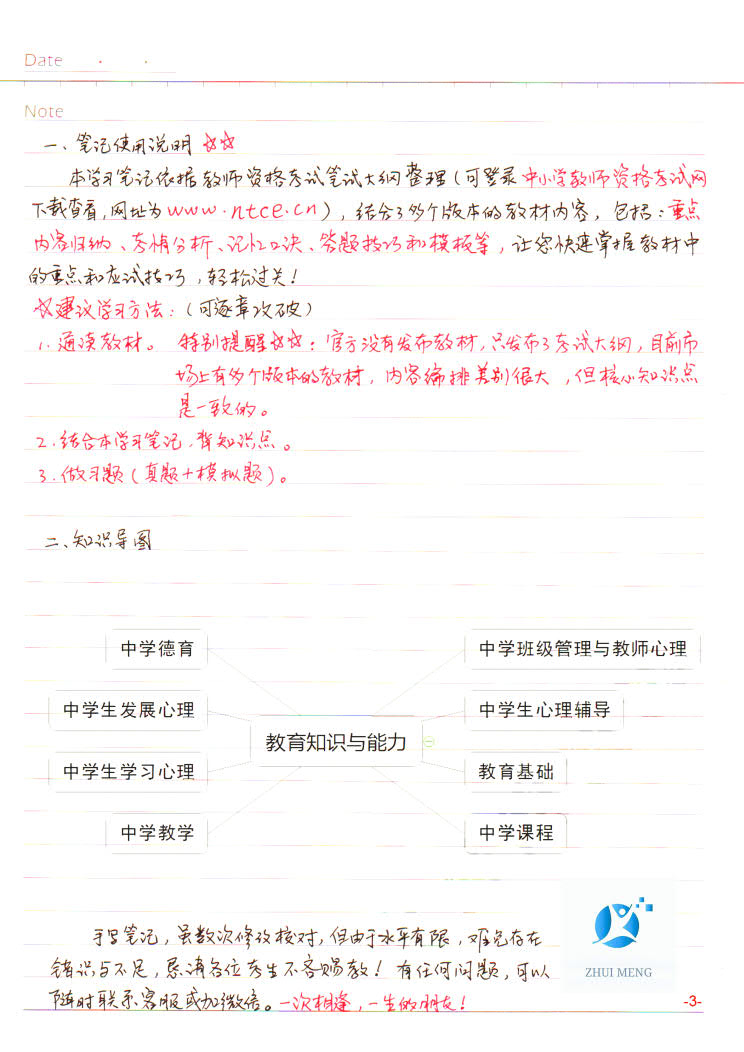 Date
Note
一、笔记使用说明 ☆☆
本学习笔记依据教师资格考试笔试大纲整理(可登录中小学教师资格考试网
下载查看,网址为www.ntce.cn),结合了多个版本的教材内容,包括:重点
内容归纳、考情分析、记忆口诀、答题技巧和模板等,让您快速掌握教材中
的重点和应试技巧,轻松过关!
☆建议学习方法:(可逐章攻破)
1.通读教材。 特别提醒☆☆:官方没有发布教材,只发布了考试大纲,目前市
场上有多个版本的教材,内容编排差别很大,但核心知识点
是一致的。
2.结合本学习笔记,背知识点。
3.做习题(真题+模拟题)。
二、知识导图
中学德育
中学班级管理与教师心理
中学生发展心理
中学生心理辅导
教育知识与能力
中学生学习心理
教育基础
中学教学
中学课程
手写笔记,虽数次修改校对,但由于水平有限,难免存在
错误与不足,恳请各位考生不吝赐教!有任何问题,可以
随时联系客服或加微信。一次相逢,一生的朋友!
ZHUI MENG
-3-